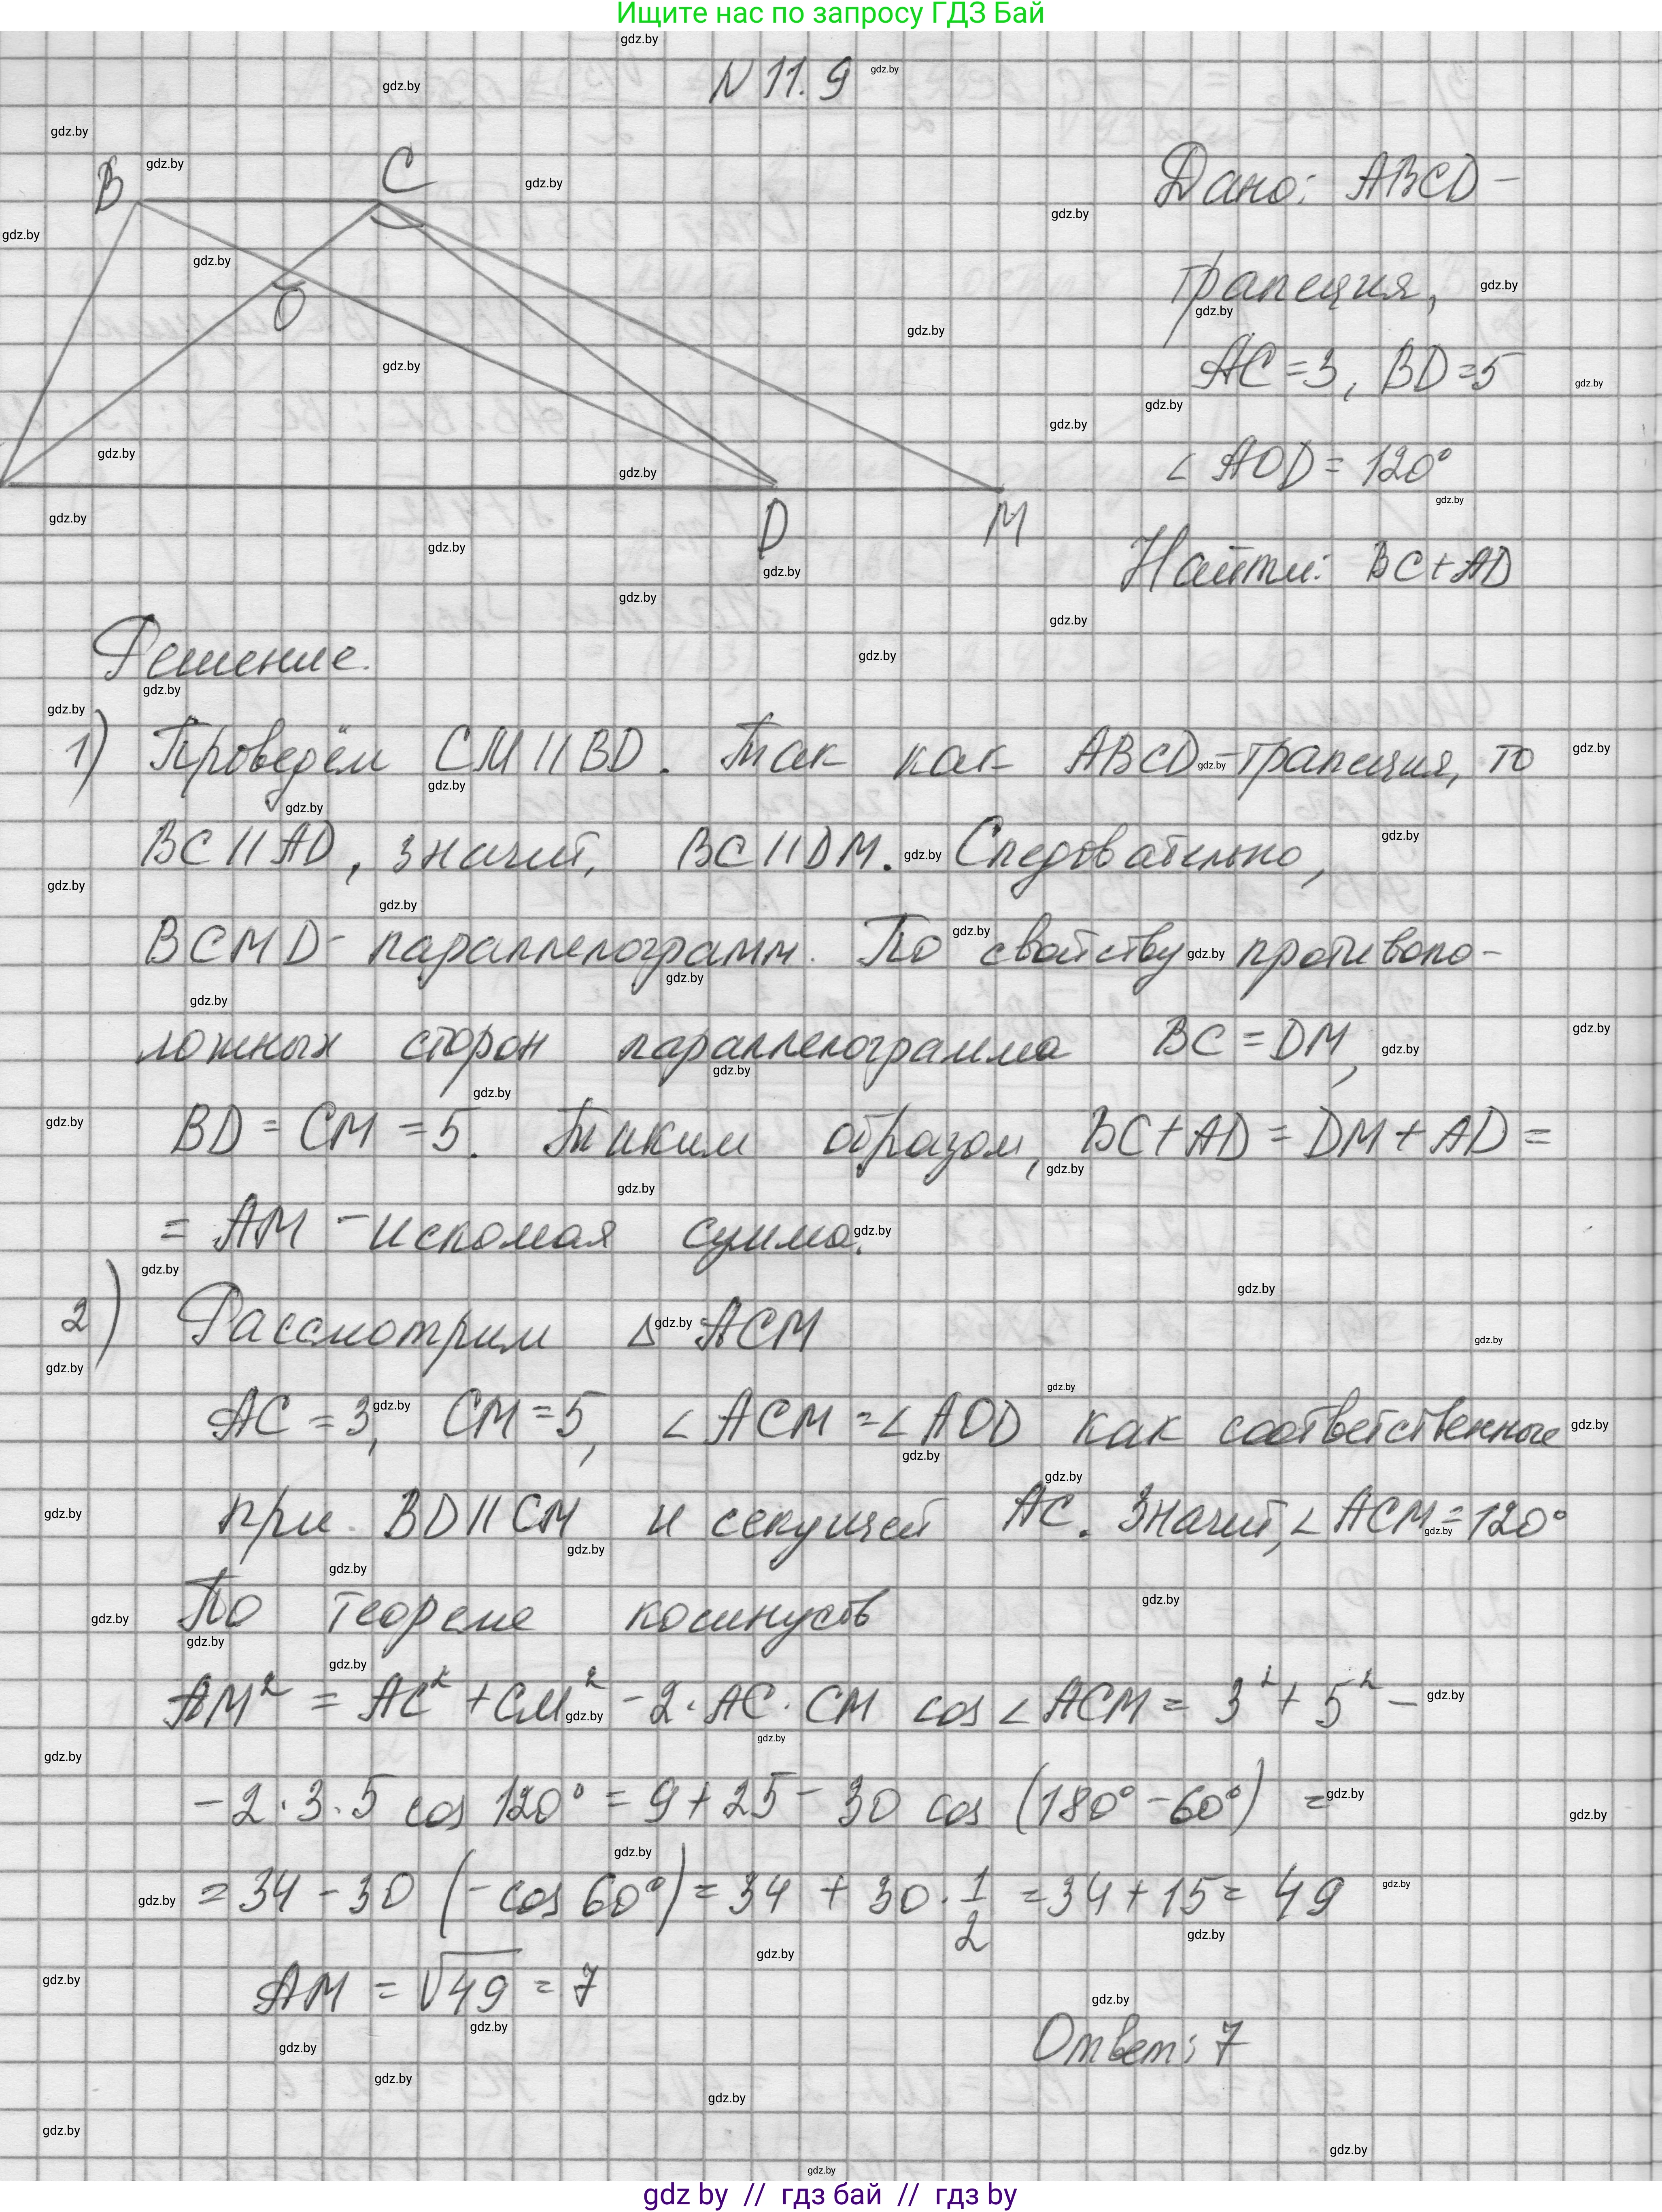 Ищите нас по запросу ГДЗ Бай
N 11.9
B
C
O
D
M
Дано: ABCD -
трапеция,
AC = 3, BD = 5
∠ AOD = 120°
Найти: BC + AD
Решение.
1) Проведём CM || BD. Так как ABCD - трапеция, то
BC || AD, значит, BC || DM. Следовательно,
BCMD - параллелограмм. По свойству противопо-
ложных сторон параллелограмма BC = DM,
BD = CM = 5. Таким образом, BC + AD = DM + AD =
= AM - искомая сумма.
2) Рассмотрим Δ ACM
AC = 3, CM = 5, ∠ ACM = ∠ AOD как соответственные
при BD || CM и секущей AC. Значит, ∠ ACM = 120°
По теореме косинусов
AM² = AC² + CM² - 2 · AC · CM cos ∠ ACM = 3² + 5² -
- 2 · 3 · 5 cos 120° = 9 + 25 - 30 cos (180° - 60°) =
= 34 - 30 (- cos 60°) = 34 + 30 · 1/2 = 34 + 15 = 49
AM = √49 = 7
Ответ: 7
gdz by // гдз бай // гдз by